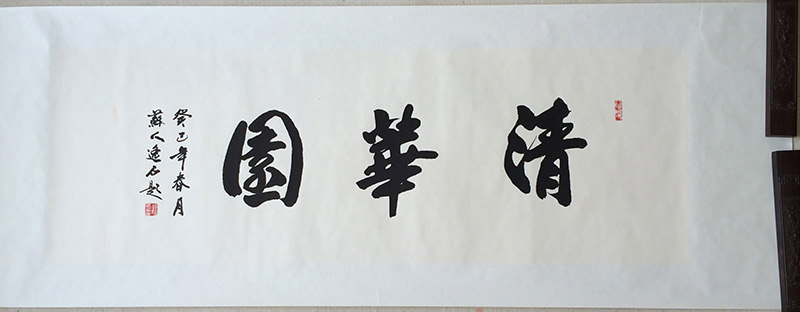 清華園
癸巳年春月
蘇人逸石題